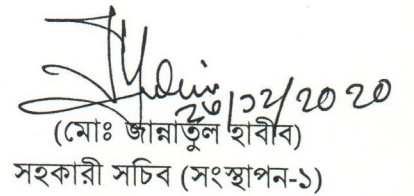 ২৩/১২/2020
(মোঃ জান্নাতুল হাবীব)
সহকারী সচিব (সংস্থাপন-১)